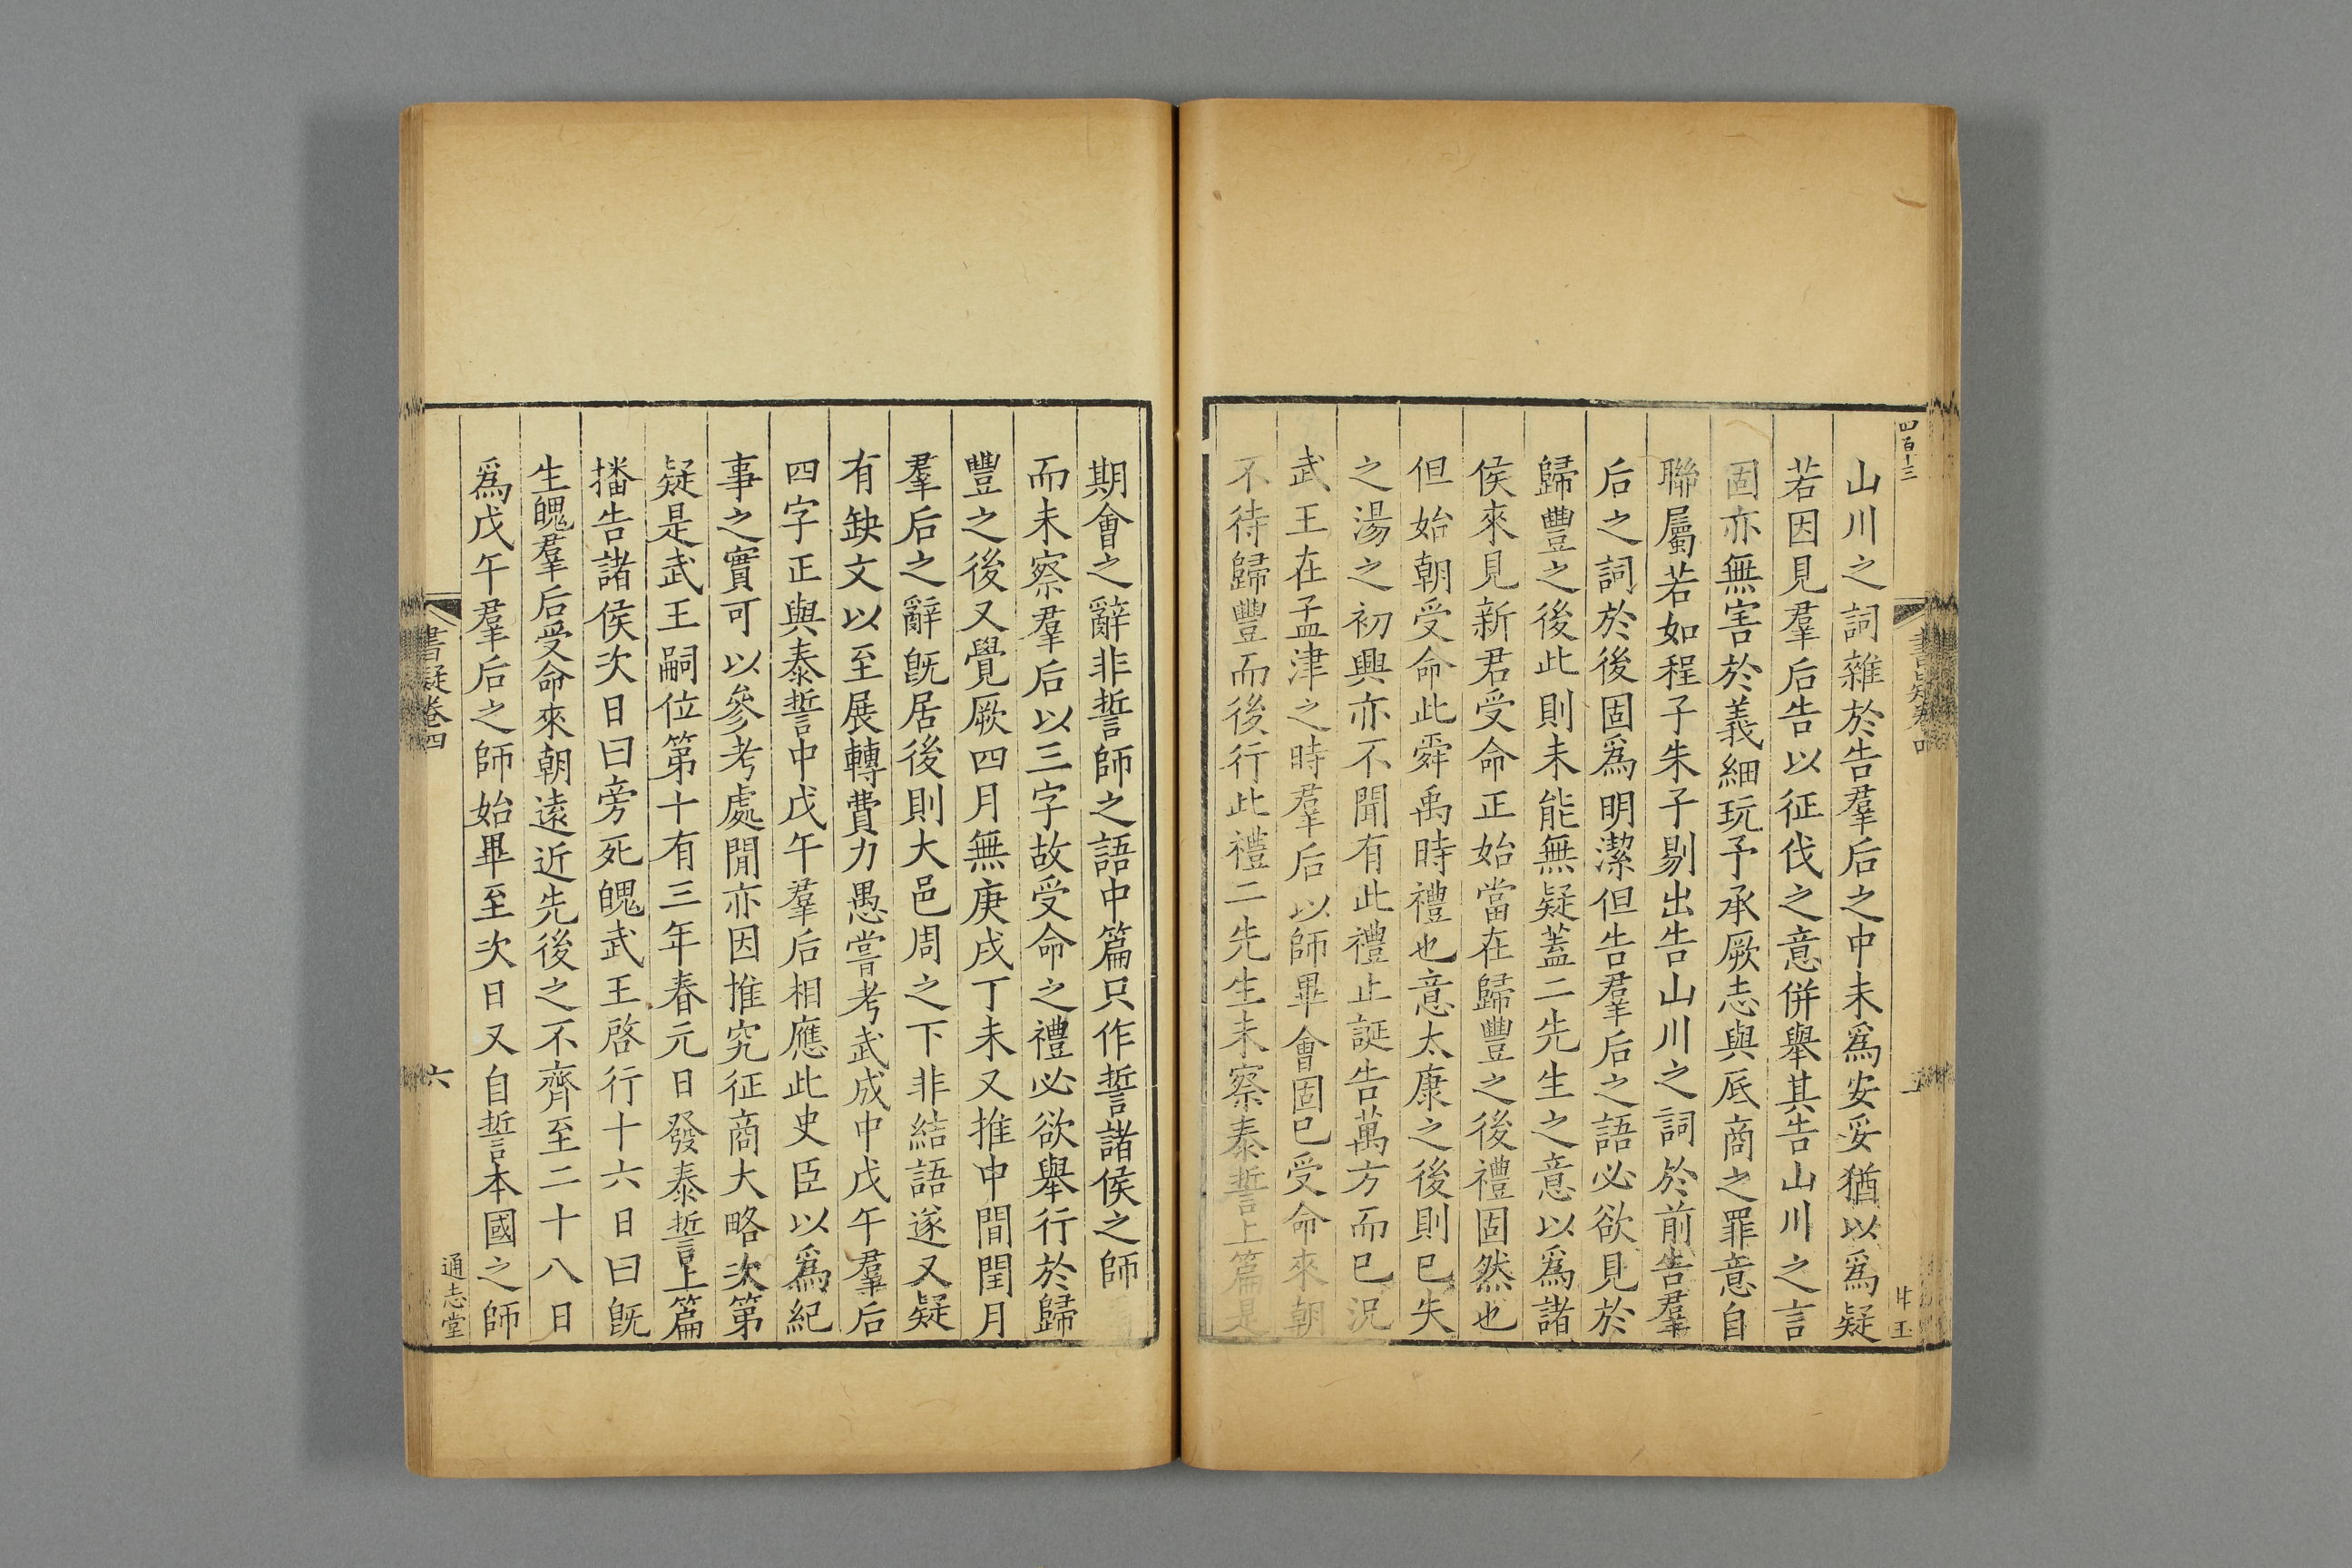 四百十三
書疑卷四
五
山川之詞雜於告羣后之中未爲安妥猶以爲疑
若因見羣后告以征伐之意併舉其告山川之言
固亦無害於義細玩予承厥志與底商之罪意自
聯屬若如程子朱子剔出告山川之詞於前告羣
后之詞於後固爲明潔但告羣后之語必欲見於
歸豐之後此則未能無疑蓋二先生之意以爲諸
侯來見新君受命正始當在歸豐之後禮固然也
但始朝受命此舜禹時禮也意太康之後則已失
之湯之初興亦不聞有此禮止誕告萬方而已況
武王在孟津之時羣后以師畢會固已受命來朝
不待歸豐而後行此禮二先生未察泰誓上篇是
期會之辭非誓師之語中篇只作誓諸侯之師
而未察羣后以三字故受命之禮必欲舉行於歸
豐之後又覺厥四月無庚戌丁未又推中間閏月
羣后之辭旣居後則大邑周之下非結語遂又疑
有缺文以至展轉費力愚嘗考武成中戊午羣后
四字正與泰誓中戊午羣后相應此史臣以爲紀
事之實可以參考處閒亦因推究征商大略次第
疑是武王嗣位第十有三年春元日發泰誓上篇
播告諸侯次日曰旁死魄武王啓行十六日曰旣
生魄羣后受命來朝遠近先後之不齊至二十八日
爲戊午羣后之師始畢至次日又自誓本國之師
書疑卷四
六
通志堂